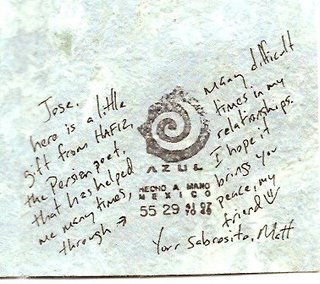 Jose,
here is a little
gift from HAFIZ,
the Persian poet,
that has helped
me many times,
through →
many difficult
times in my
relationships.
I hope it
brings you
peace, my
friend
Your Sabrosito, Matt
AZUL
HECHO A MANO
MEXICO
55 29 41 07
70 49